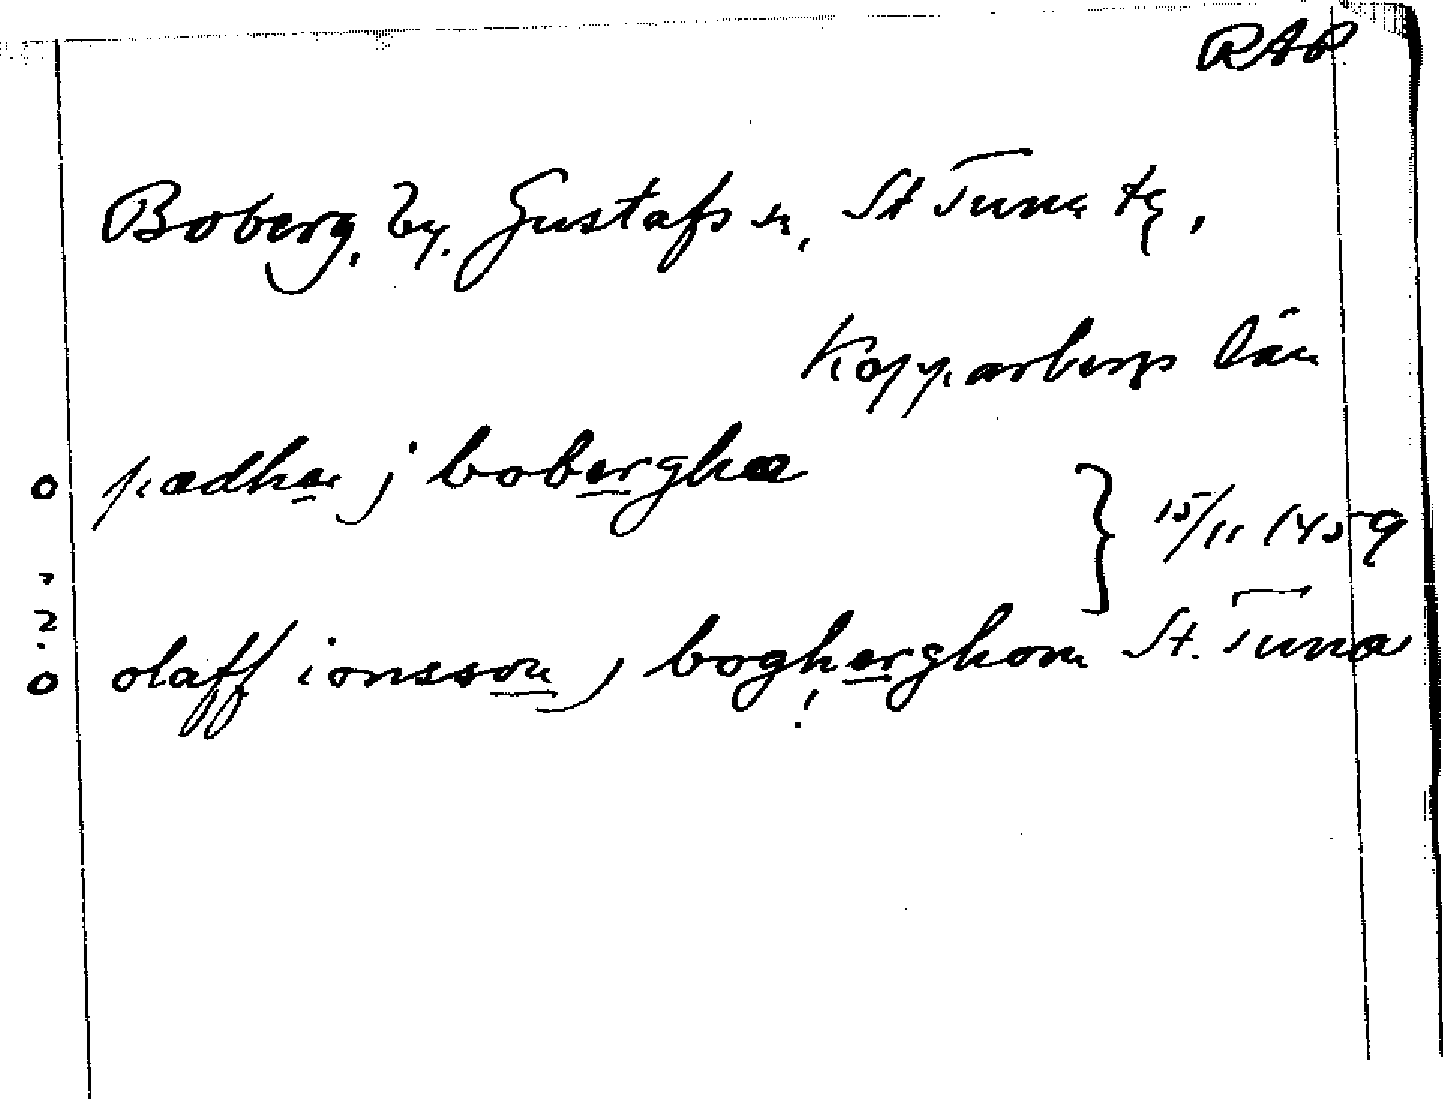 RAP
Boberg, by. Gustafs sn, St Tuna tg,
Kopparbergs län
o pædhar j boberghæ
} 15/11 1459
?
o olaff ionsson j bogherghom St. Tuna
!